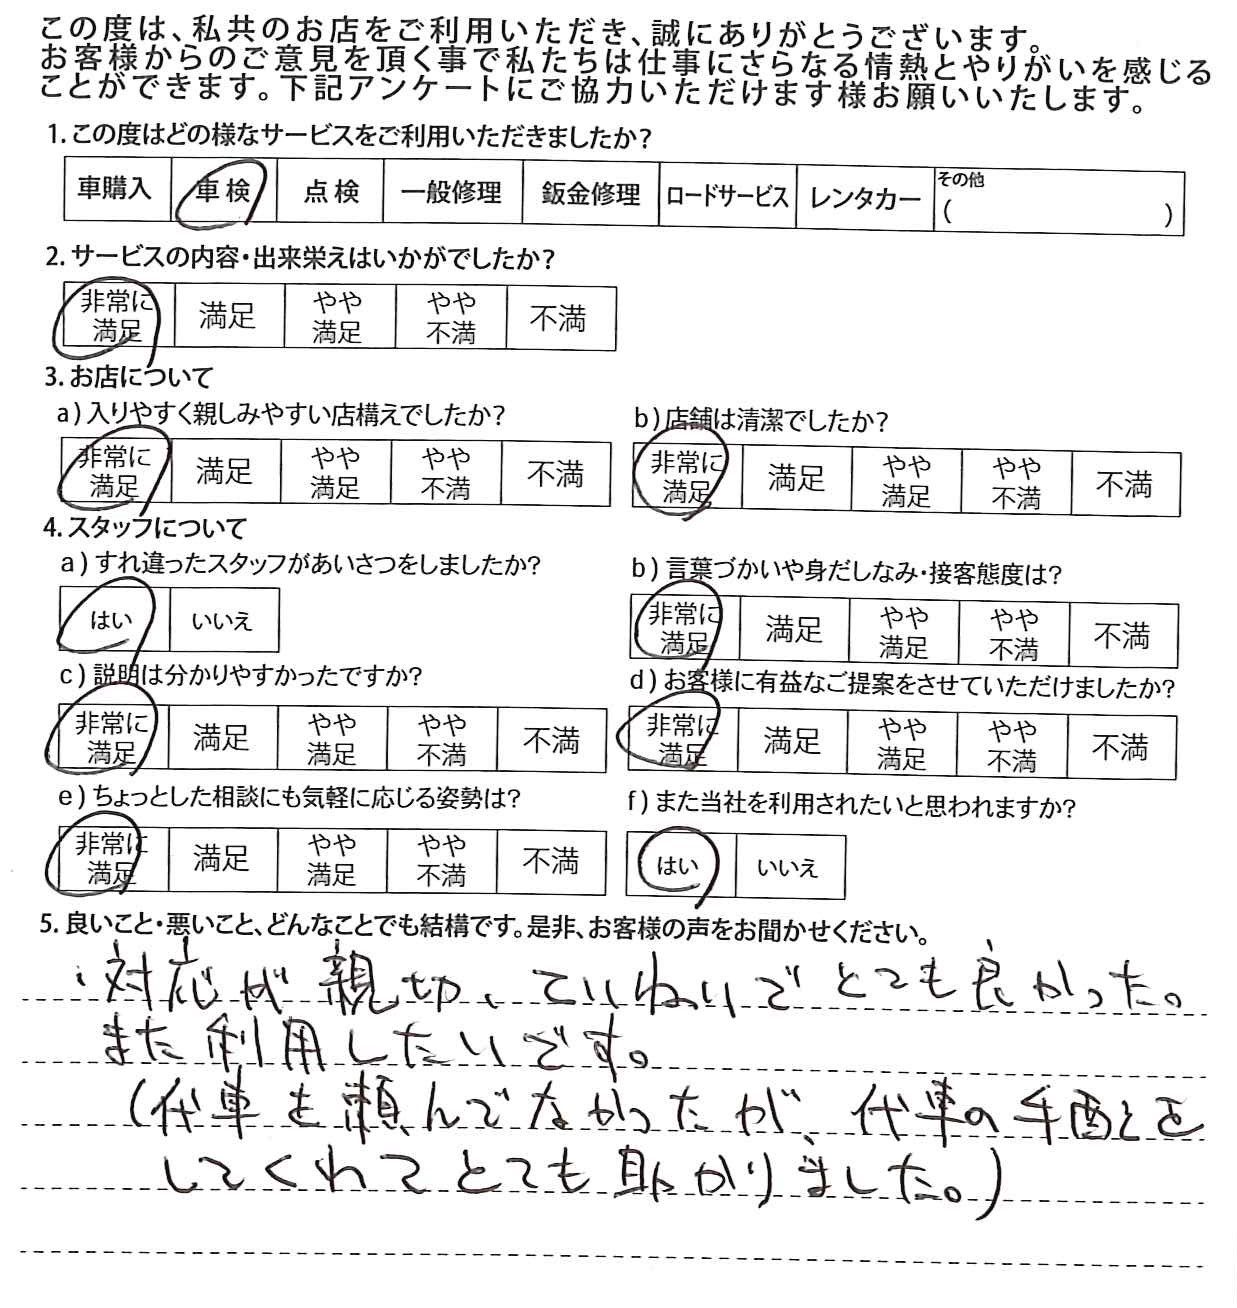 この度は、私共のお店をご利用いただき、誠にありがとうございます。
お客様からのご意見を頂く事で私たちは仕事にさらなる情熱とやりがいを感じる
ことができます。下記アンケートにご協力いただけます様お願いいたします。
1.この度はどの様なサービスをご利用いただきましたか?
車購入 車検 点検 一般修理 鈑金修理 ロードサービス レンタカー その他 ( )
2.サービスの内容・出来栄えはいかがでしたか?
非常に満足 満足 やや満足 やや不満 不満
3.お店について
a)入りやすく親しみやすい店構えでしたか?
非常に満足 満足 やや満足 やや不満 不満
b)店舗は清潔でしたか?
非常に満足 満足 やや満足 やや不満 不満
4.スタッフについて
a)すれ違ったスタッフがあいさつをしましたか?
はい いいえ
b)言葉づかいや身だしなみ・接客態度は?
非常に満足 満足 やや満足 やや不満 不満
c)説明は分かりやすかったですか?
非常に満足 満足 やや満足 やや不満 不満
d)お客様に有益なご提案をさせていただけましたか?
非常に満足 満足 やや満足 やや不満 不満
e)ちょっとした相談にも気軽に応じる姿勢は?
非常に満足 満足 やや満足 やや不満 不満
f)また当社を利用されたいと思われますか?
はい いいえ
5.良いこと・悪いこと、どんなことでも結構です。是非、お客様の声をお聞かせください。
・対応が親切、ていねいでとても良かった。
また利用したいです。
(代車を頼んでなかったが、代車の手配とを
してくれてとても助かりました。)